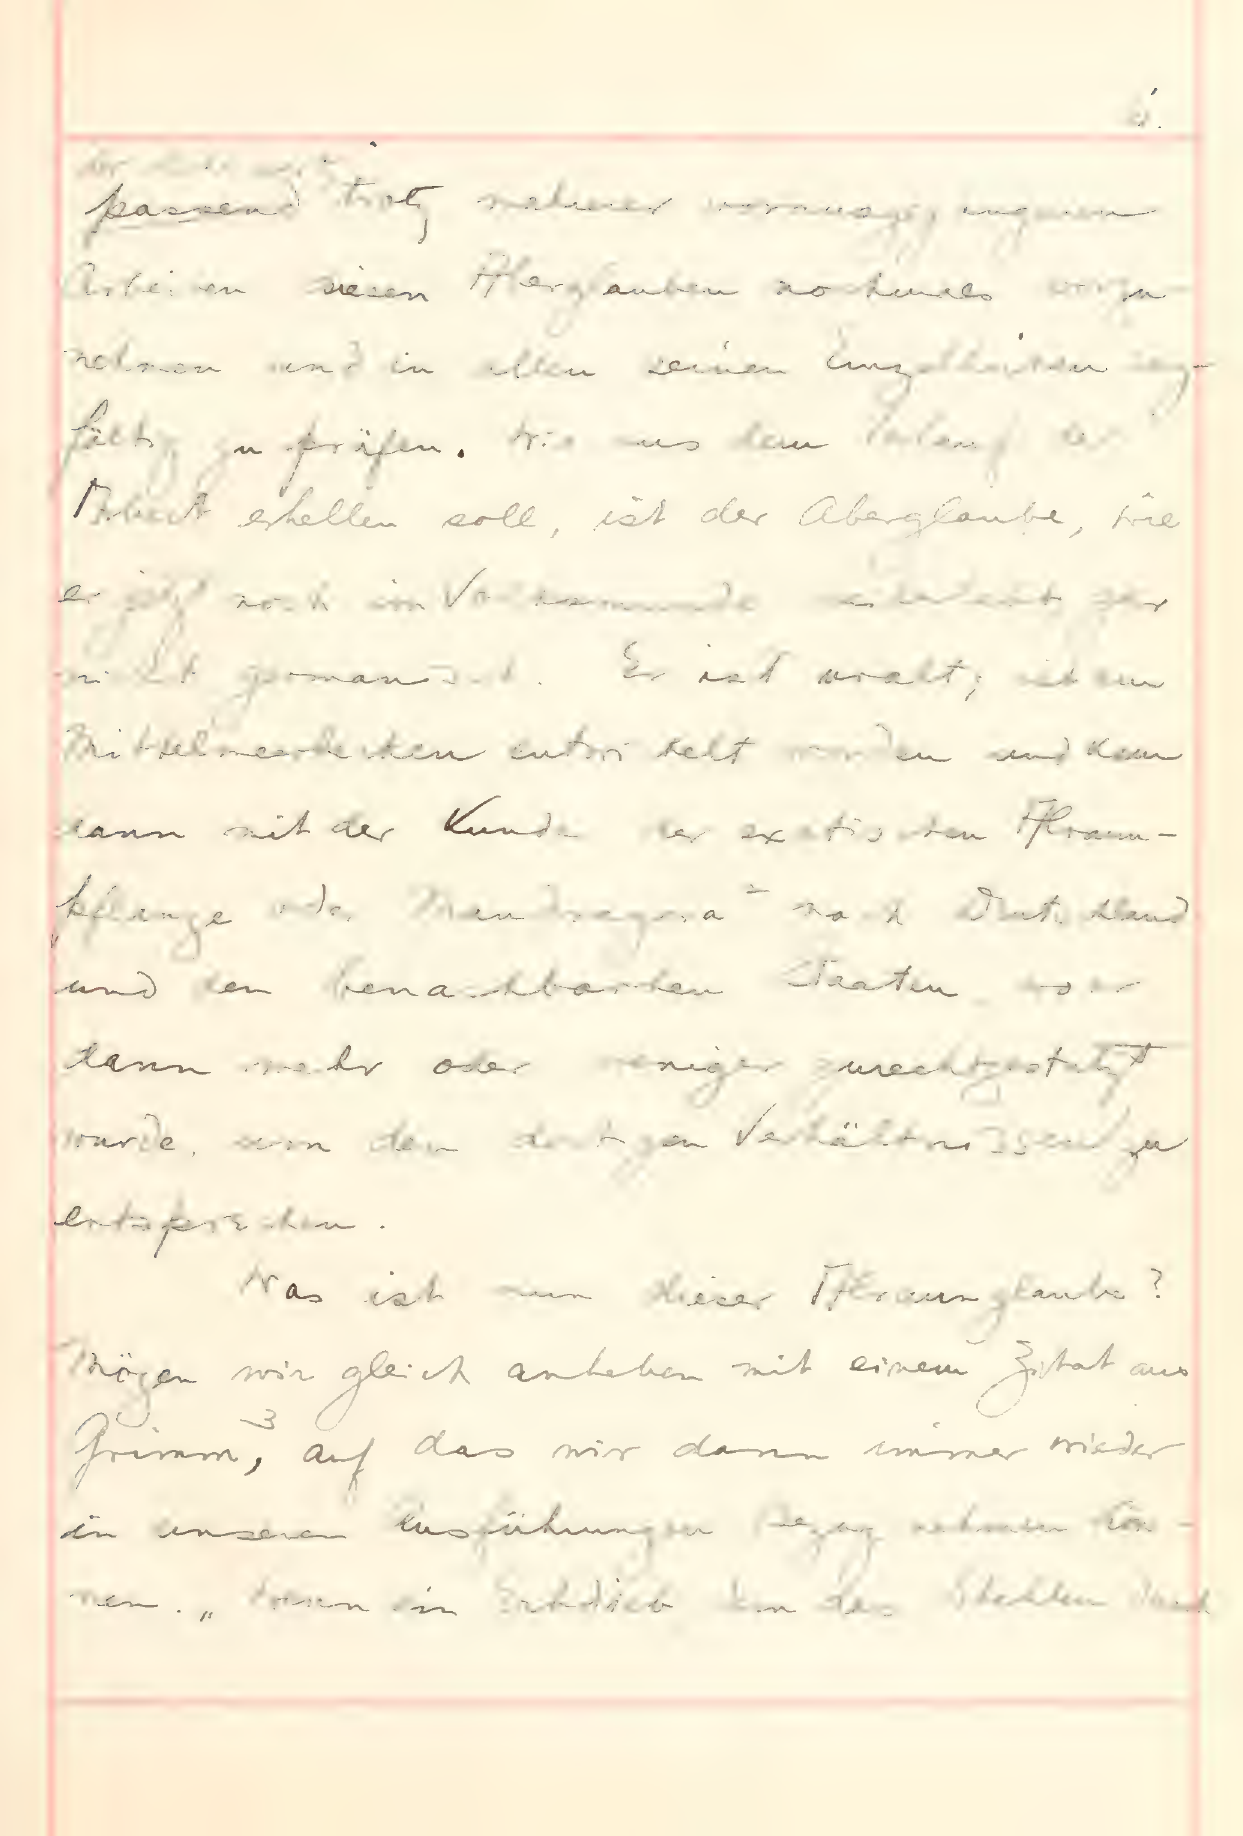 passend trotz mehrerer vorausgegangenen
Arbeiten diesen Aberglauben nochmals vorzu-
nehmen und in allen seinen Einzelheiten sorg-
fältig zu prüfen. Wie aus dem Verlauf der
Arbeit erhellen soll, ist der Aberglaube, wie
er jetzt noch im Volksmunde gar
nicht germanisch. Er ist uralt, ist im
Mittelmeerbecken entwickelt worden und kam
dann mit der Kunde der exotischen Alraun-
pflanze oder "Mandragora" nach Deutschland
und den benachbarten Staaten, wo er
dann mehr oder weniger zurechtgestutzt
wurde, um den dortigen Verhältnissen zu
entsprechen.
Was ist nun dieser Alraunglaube?
Mögen wir gleich anheben mit einem Zitat aus
Grimm,3 auf das wir dann immer wieder
in unseren Ausführungen Bezug nehmen kön-
nen. „Wenn ein Erbdieb dem das Stehlen durch